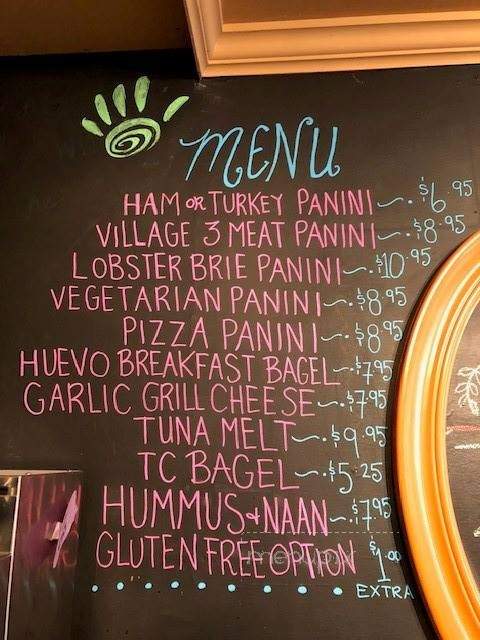 MENU
HAM OR TURKEY PANINI ~. $6.95
VILLAGE 3 MEAT PANINI ~. $8.95
LOBSTER BRIE PANINI ~. $10.95
VEGETARIAN PANINI ~. $8.95
PIZZA PANINI ~. $8.95
HUEVO BREAKFAST BAGEL ~. $7.95
GARLIC GRILL CHEESE ~. $7.95
TUNA MELT ~. $9.95
TC BAGEL ~. $5.25
HUMMUS & NAAN ~. $7.95
GLUTEN FREE OPTION $1.00
EXTRA